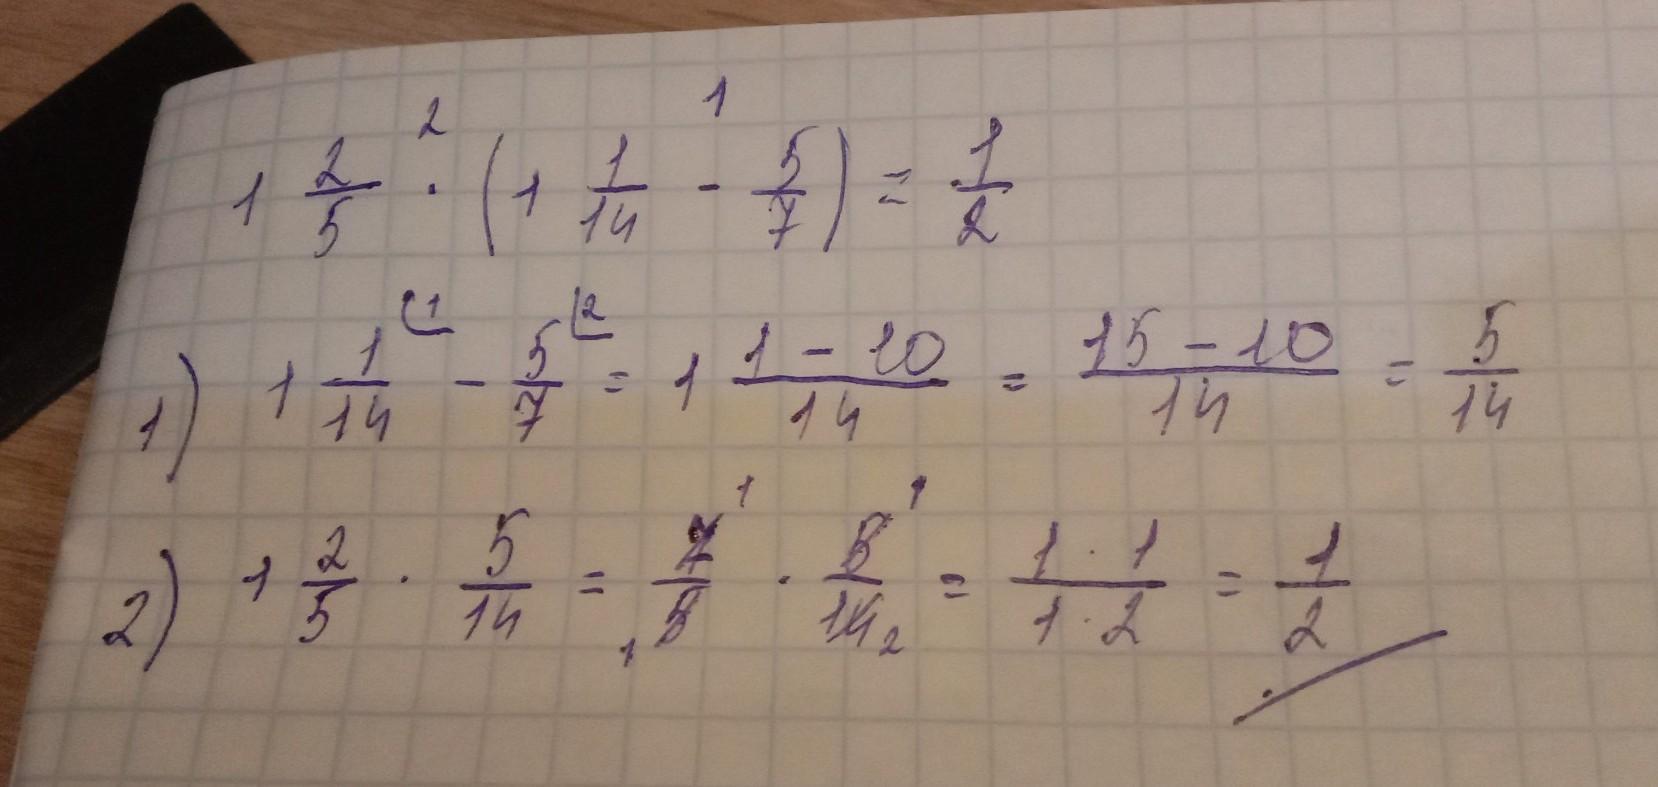 1 2/5 ·² (1 1/14 -¹ 5/7) = 1/2
1) 1 1/14 ⌊1 - 5/7 ⌊2 = 1 (1 - 10)/14 = (15 - 10)/14 = 5/14
2) 1 2/5 · 5/14 = 7¹/₁5 · 5¹/14₂ = (1 · 1)/(1 · 2) = 1/2